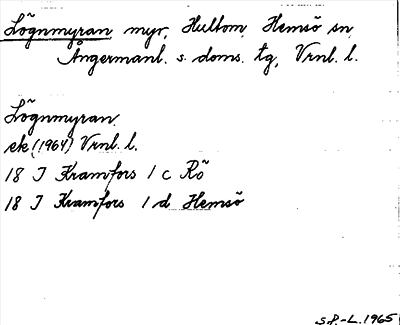 Lögnmyran myr, Hultom, Hemsö sn
Ångermanl. s. doms. tg, Vrnl. l.
Lögnmyran.
ek (1964) Vrnl. l.
18 J Kramfors 1 c Rö
18 J Kramfors 1 d Hemsö
S.P.-L. 1965